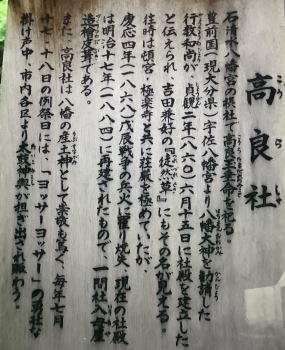 高良社
石清水八幡宮の摂社で高良玉垂命を祀る。
豊前国（現大分県）宇佐八幡宮より八幡大神を勧請した
行教和尚が、貞観二年（八六〇）六月十五日に社殿を建立した
と伝えられ、吉田兼好の『徒然草』にもその名が見える。
往時は頓宮・極楽寺と共に荘厳を極めていたが、
慶応四年（一八六八）戊辰戦争の兵火に罹り焼失、現在の社殿
は明治十七年（一八八四）に再建されたもので、一間社入母屋
造檜皮葺である。
また、高良社は八幡の産土神として崇敬も篤く、毎年七月
十七・十八日の例祭日には、「ヨッサーヨッサー」の勇壮な
掛け声中、市内各区より太鼓神輿が担ぎ出され賑わう。